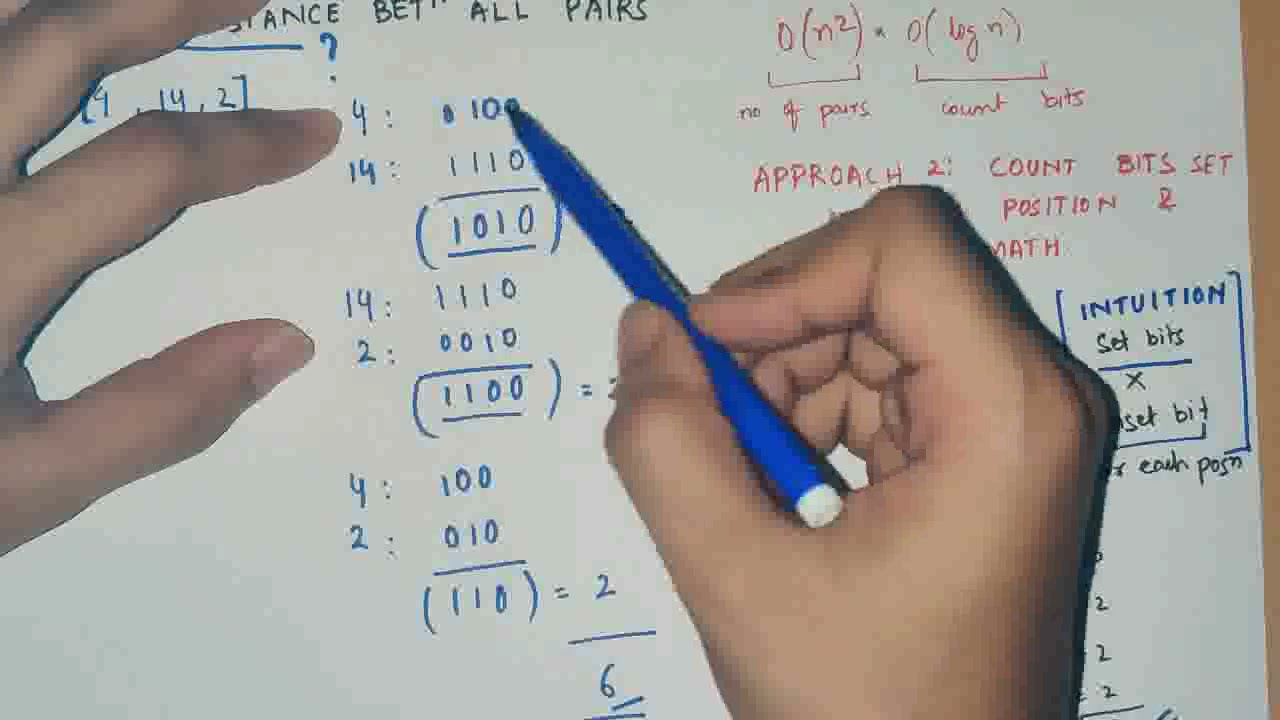 BETⁿ ALL PAIRS
?
[4, 14, 2]
4: 0100
14: 1110
(1010)
14: 1110
2: 0010
(1100) =
4: 100
2: 010
(110) = 2
6
O(n²) * O(log n)
no of pairs count bits
APPROACH 2: COUNT BITS SET
POSITION &
MATH
[INTUITION]
set bits
×
set bit
each posn
2
2
= 2